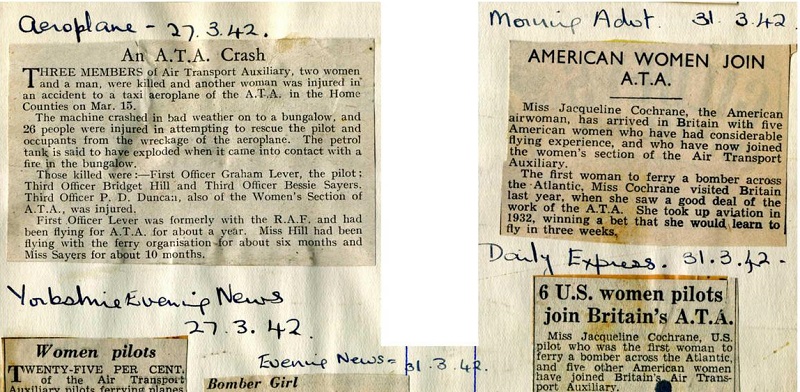 Aeroplane - 27.3.42.
An A.T.A. Crash
THREE MEMBERS of Air Transport Auxiliary, two women
and a man, were killed and another woman was injured in
an accident to a taxi aeroplane of the A.T.A. in the Home
Counties on Mar. 15.
The machine crashed in bad weather on to a bungalow, and
26 people were injured in attempting to rescue the pilot and
occupants from the wreckage of the aeroplane. The petrol
tank is said to have exploded when it came into contact with a
fire in the bungalow.
Those killed were :—First Officer Graham Lever, the pilot ;
Third Officer Bridget Hill and Third Officer Bessie Sayers.
Third Officer P. D. Duncan, also of the Women's Section of
A.T.A., was injured.
First Officer Lever was formerly with the R.A.F. and had
been flying for A.T.A. for about a year. Miss Hill had been
flying with the ferry organisation for about six months and
Miss Sayers for about 10 months.
Yorkshire Evening News
27.3.42.
Women pilots
TWENTY-FIVE PER CENT.
of the Air Transport
Auxiliary pilots ferrying planes
Evening News = 31.3.42.
Bomber Girl
Morning Advt. 31.3.42.
AMERICAN WOMEN JOIN
A.T.A.
Miss Jacqueline Cochrane, the American
airwoman, has arrived in Britain with five
American women who have had considerable
flying experience, and who have now joined
the women's section of the Air Transport
Auxiliary.
The first woman to ferry a bomber across
the Atlantic, Miss Cochrane visited Britain
last year, when she saw a good deal of the
work of the A.T.A. She took up aviation in
1932, winning a bet that she would learn to
fly in three weeks.
Daily Express. 31.3.42-
6 U.S. women pilots
join Britain's A.T.A.
Miss Jacqueline Cochrane, U.S.
pilot who was the first woman to
ferry a bomber across the Atlantic,
and five other American women
have joined Britain's Air Trans-
port Auxiliary.